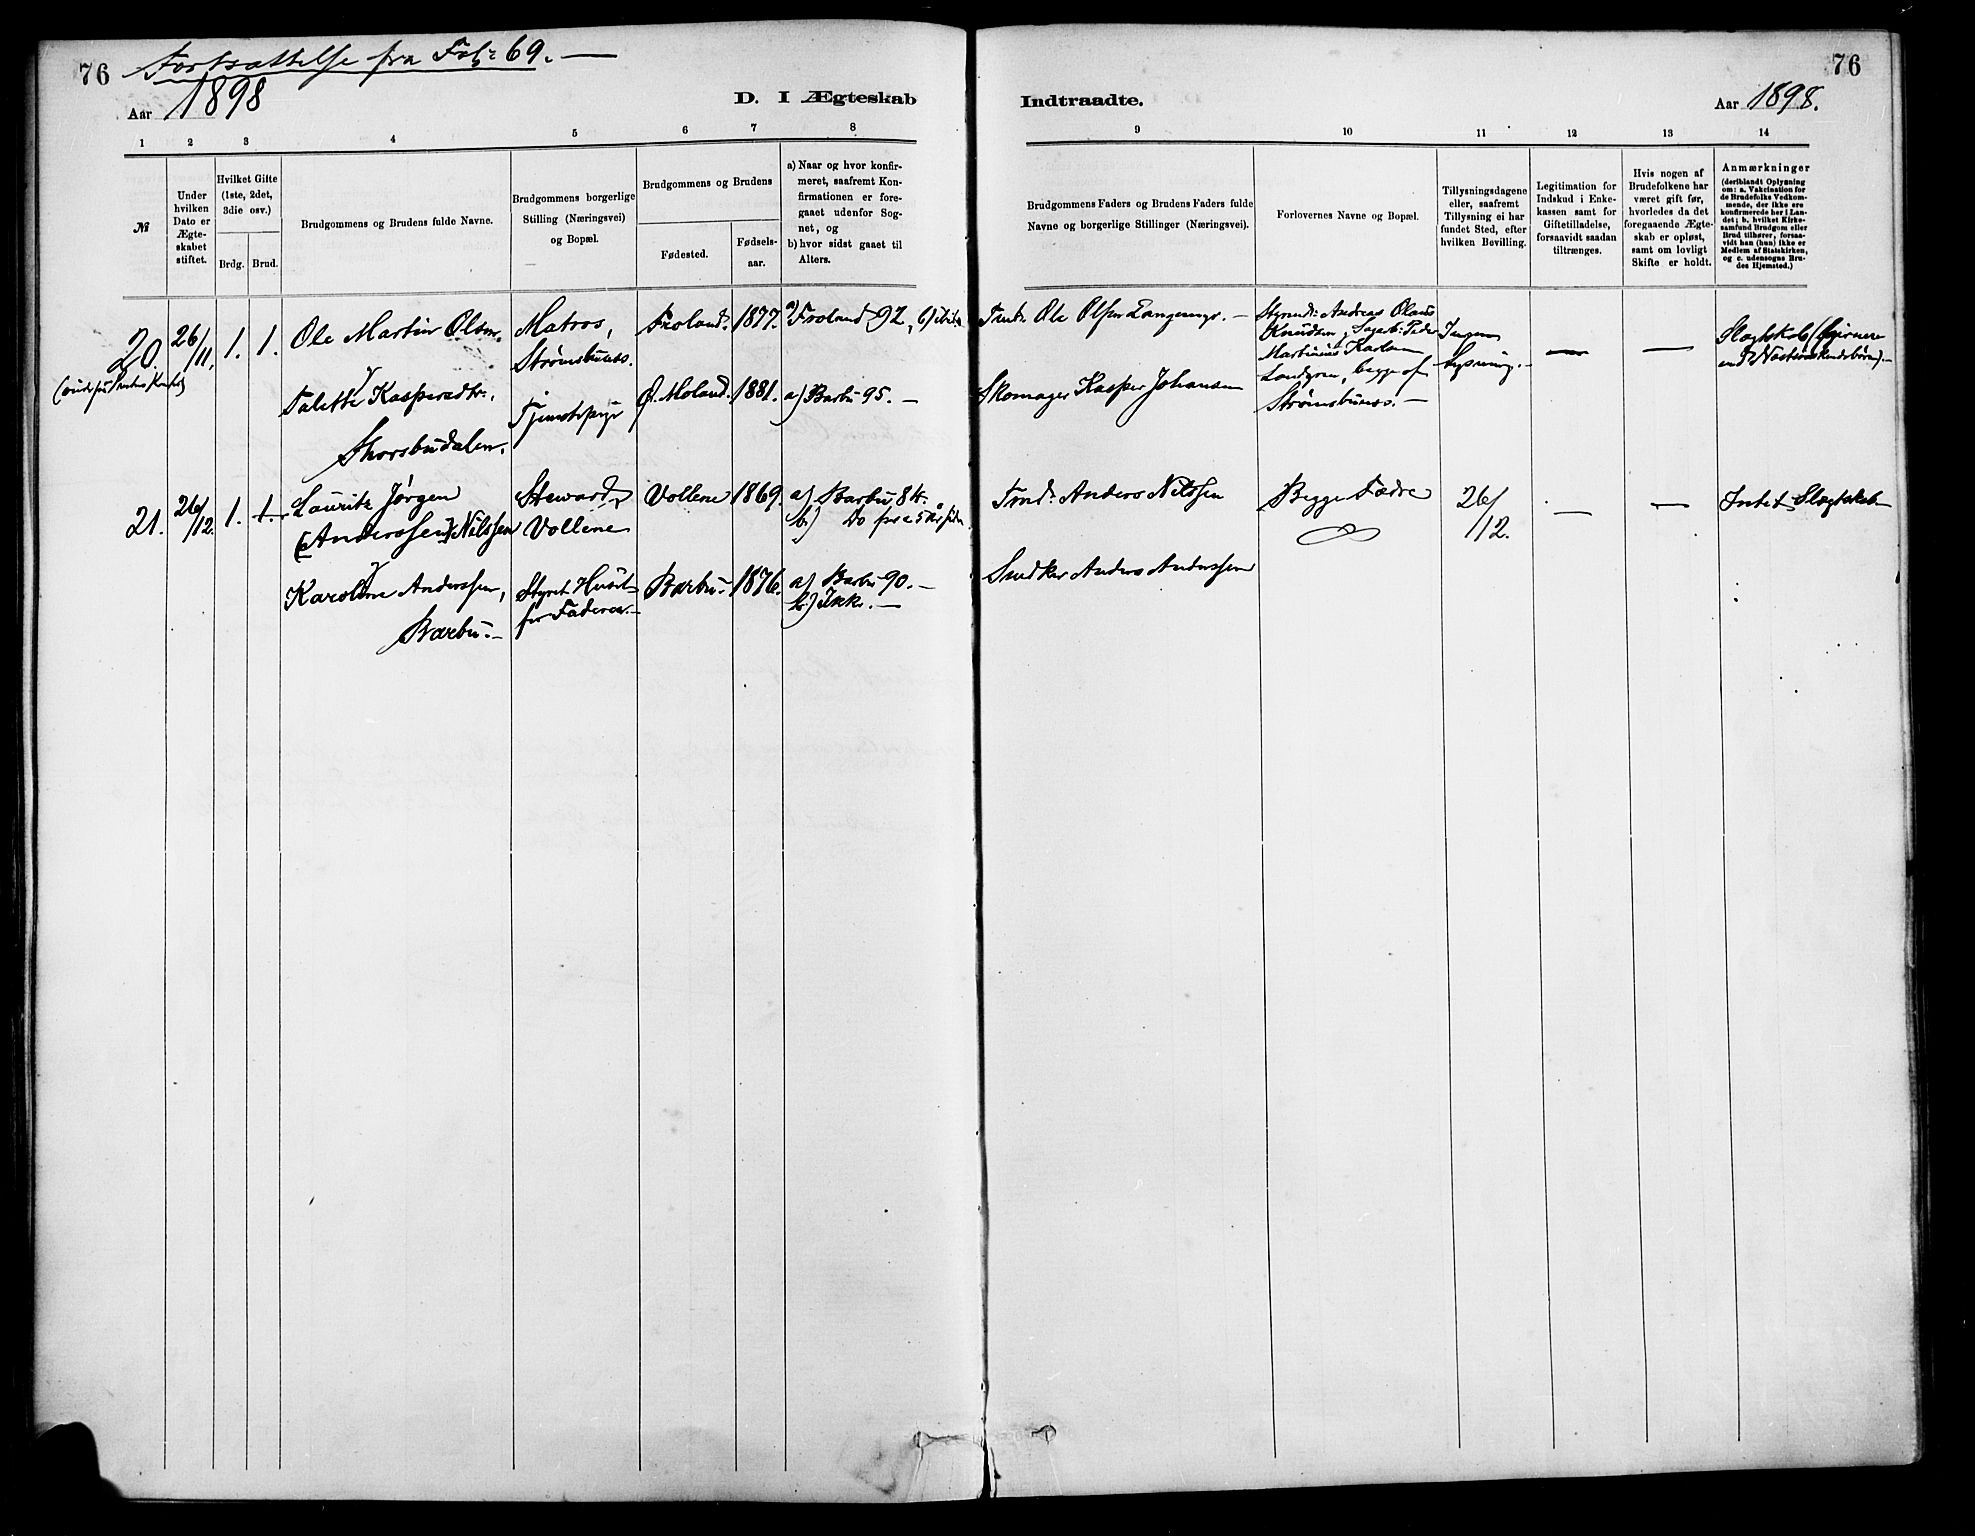 76 Fortsættelse fra Fol: 69. —
Aar 1898
D. I Ægteskab
1 2 3 4 5 6 7 8
№
Under hvilken Dato er Ægteskabet stiftet.
Hvilket Gifte (1ste, 2det, 3die osv.)
Brdg. Brud.
Brudgommens og Brudens fulde Navne.
Brudgommens borgerlige Stilling (Næringsvei) og Bopæl.
Brudgommens og Brudens
Fødested.
Fødsels-aar.
a) Naar og hvor konfir-
meret, saafremt Kon-
firmationen er fore-
gaaet udenfor Sog-
net, og
b) hvor sidst gaaet til
Alters.
20. 26/11. 1. 1. Ole Martin Olsen. Matros, Strømsbunes. Froland. 1877. a) Froland 92, b) ibid.
&
Talette Kaspersdtr., Tjenestepige Ø. Moland. 1881. a) Barbu 95. —
Skorsbudalen.
21. 26/12. 1. 1. Lauritz Jørgen Steward, Vollene 1869. a) Barbu 84.
(Anderssen) Nilssen Vollene b) Do for c 5 Aar siden
&
Karoline Anderssen, Styret Huset Barbu. 1876. a) Barbu 90. —
Barbu. — for Faderen. — b) Ikke. —
76
Indtraadte.
Aar 1898.
9 10 11 12 13 14
Brudgommens Faders og Brudens Faders fulde
Navne og borgerlige Stillinger (Næringsvei).
Forlovernes Navne og Bopæl.
Tillysningsdagene
eller, saafremt
Tillysning ei har
fundet Sted, efter
hvilken Bevilling.
Legitimation for
Indskud i Enke-
kassen samt for
Giftetilladelse,
forsaavidt saadan
tiltrænges.
Hvis nogen af
Brudefolkene har
været gift før,
hvorledes da det
foregaaende Ægte-
skab er opløst,
samt om lovligt
Skifte er holdt.
Anmærkninger
(deriblandt Oplysning
om: a. Vakcination for
de Brudefolks Vedkom-
mende, der ikke ere
konfirmerede her i Lan-
det; b. hvilket Kirke-
samfund Brudgom eller
Brud tilhører, forsaa-
vidt han (hun) ikke er
Medlem af Statskirken,
og c. udensogns Bru-
des Hjemsted.)
Ole Olsen —
Styrmd: Andreas Olaus
Knudsen, Peder
Martinius Karlsen
Landgren, begge af
Strømsbunes. —
Ingen
Lysning. —
—
—
Slægtskab (fjernere
end Næstsøskendebørn). —
Skomager Kasper Johansen
Tmd: Anders Nilssen
Begge Fædre
26/12.
—
—
Intet Slægtskab
Snedker Anders Anderssen